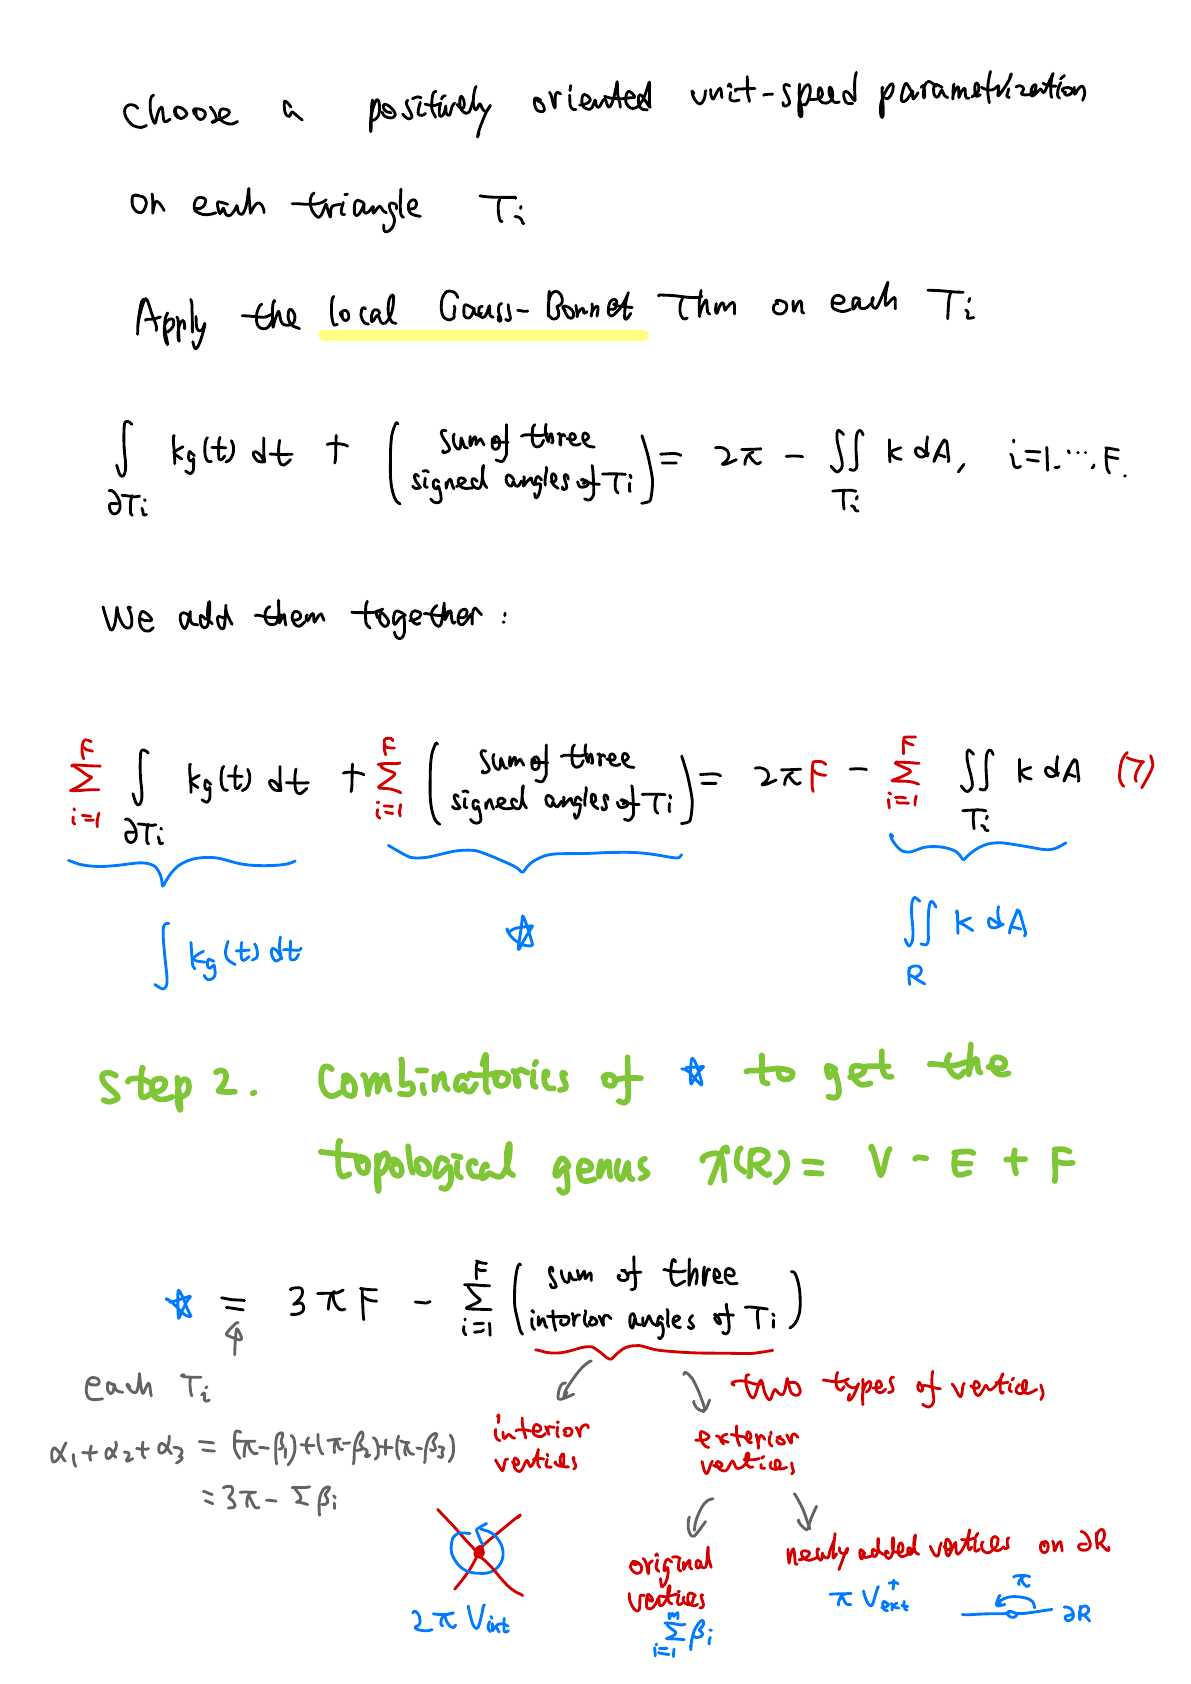 Choose a positively oriented unit-speed parametrization
on each triangle Ti
Apply the local Gauss-Bonnet Thm on each Ti
∫∂Ti kg(t) dt + (sum of three signed angles of Ti) = 2π − ∬Ti k dA, i=1.⋯.F.
We add them together:
∑i=1F ∫∂Ti kg(t) dt + ∑i=1F (sum of three signed angles of Ti) = 2πF − ∑i=1F ∬Ti k dA (7)
∫ kg(t) dt ☆ ∬R k dA
Step 2. Combinatorics of ☆ to get the
topological genus χ(R) = V - E + F
☆ = 3πF − ∑i=1F (sum of three interior angles of Ti)
each Ti
α1+α2+α3 = (π-β1)+(π-β2)+(π-β3)
= 3π- Σβi
two types of vertices
interior vertices
exterior vertices
2π Vint
original vertices
∑i=1m βi
newly added vertices on ∂R
π V+ext
π
∂R